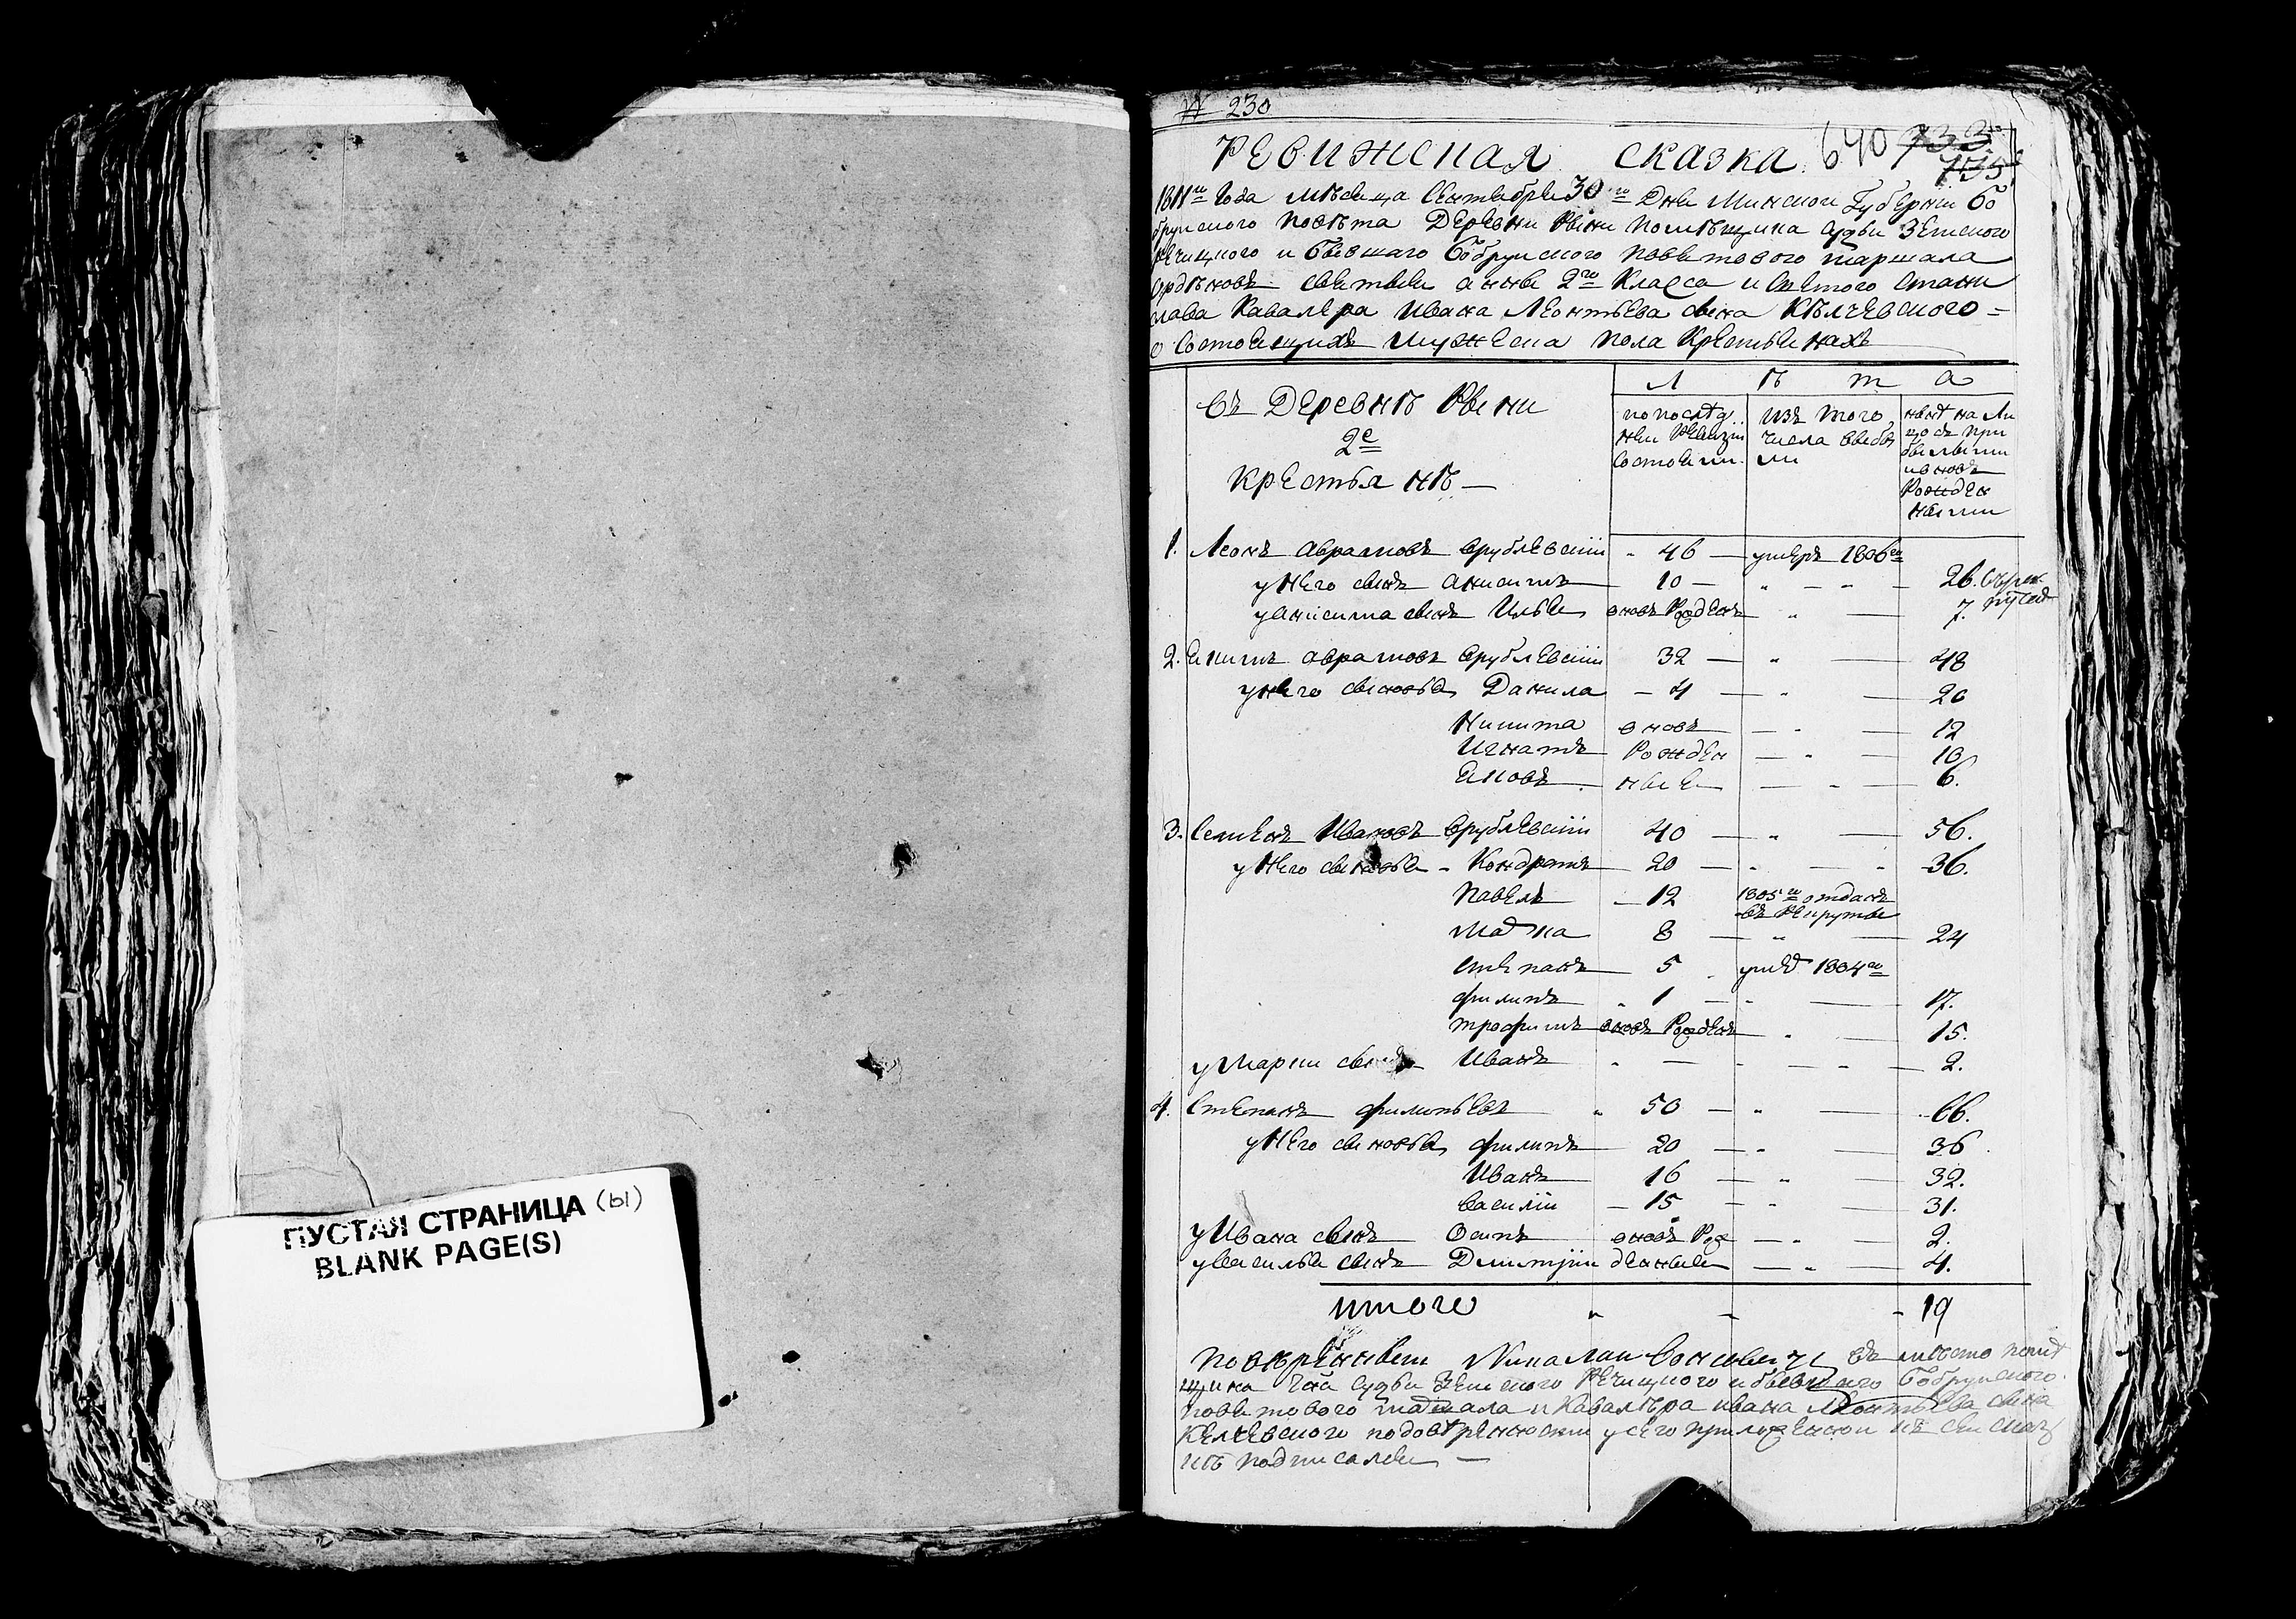 ПУСТАЯ СТРАНИЦА (Ы)
BLANK PAGE(S)
№ 230
Ревижская сказка 640 733
735
1811го Года Мѣсяца Сентября 30го Дня Минской Губерніи Бо
бруйского Повѣта Деревни Рыни Помѣщика Судьи Земского
Речицкого и бывшаго Бобруйского Поветового Маршала
Ордѣновъ Святыя Анны 2го Класса и Святого Стани
слава Кавалера Ивана Леонтьева сына Кѣлчевского
о Состоящихъ Мужеска пола Крестьянахъ
Л ѣ т а
Въ Деревнѣ Рыни
2е
Крестьянѣ
по послѣд
ней Ревизіи
Состояли
изъ того
числа выбы
ли
нынѣ на Ли
цо съ при
былыми
и вновь
Рожден
ными
1. Леонъ Аврамовъ Врублевскій 46 умеръ 1806го
у Него сынъ Анисимъ 10 26.
у Анисима сынъ Илья вновь Рожденъ 7.
2. Якимъ Аврамовъ Врублевскій 32 48
у него сыновья Данила 4 20
Никита вновь 12
Игнатъ Рожден 10
Яковъ ные 6.
3. Семенъ Ивановъ Врублевскій 40 56.
у Него сыновья Кондратъ 20 36.
Павелъ 12 1805го отданъ
въ Рекруты
8 24
Степанъ 5 умеръ 1804го
Филипъ 1 17.
Трофимъ вновь Рожденъ 15.
сынъ Иванъ 2.
4. Степанъ Филипьевъ 50 66.
у Него сыновья Филипъ 20 36
Иванъ 16 32.
Василій 15 31.
у Ивана сынъ Осипъ вновь Рож 2.
у Василья сынъ Дмитрій денные 4.
Итого 19
Повѣренный Николай въ мѣсто помѣ
щика Судьи Земского Речицкого и бывшаго Бобруйского
Поветового Маршала и Кавалѣра Ивана Леонтьева сына
Келчевского по довѣренности у сего приложенной къ сей сказ
кѣ подписался